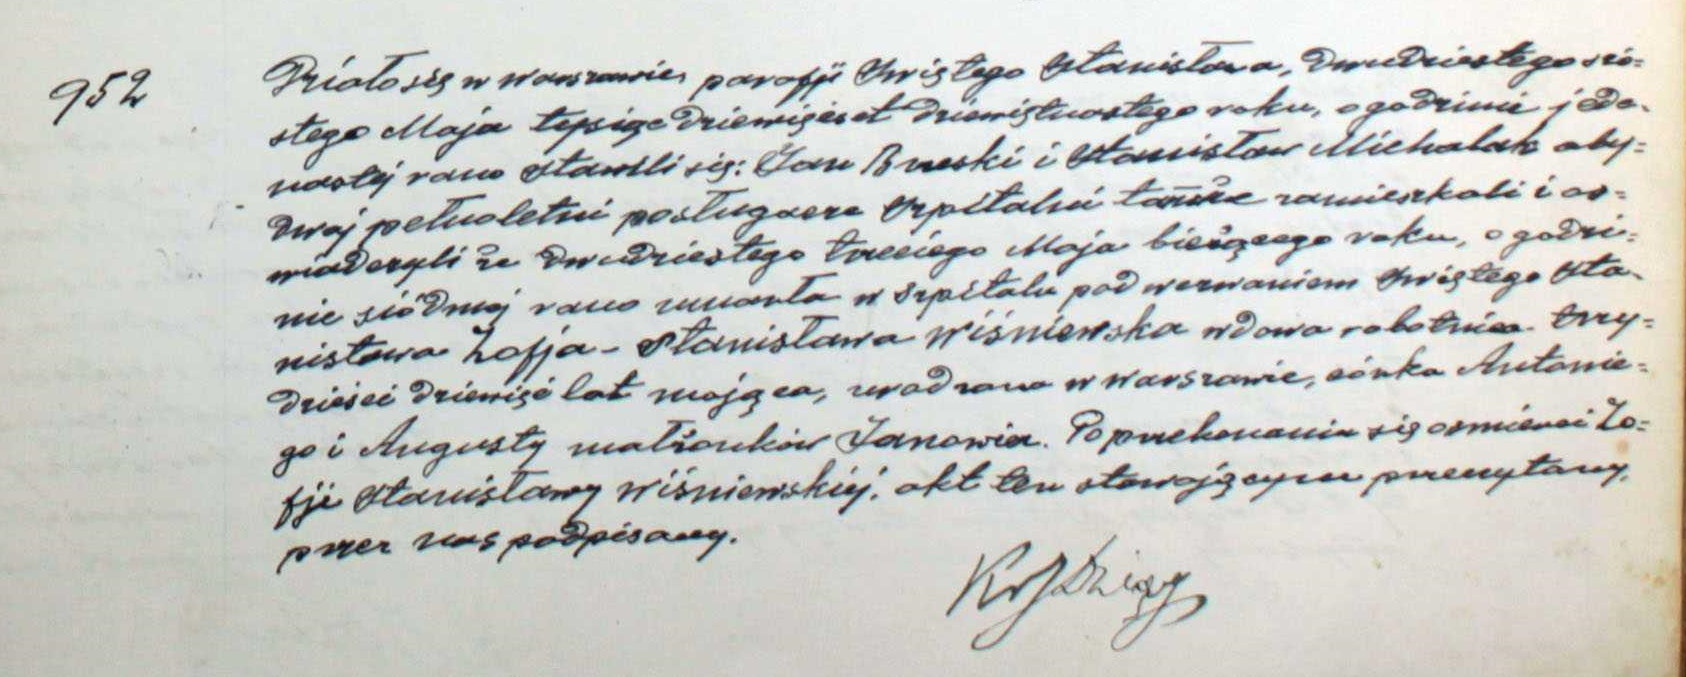 952
Działo się w Warszawie, parafji Świętego Stanisława, dwudziestego szó=
stego Maja tysiąc dziewięćset dziewiętnastego roku, o godzinie jede-
nastej rano stawili się: Jan Brzeski i Stanisław Michalak oby=
dwaj pełnoletni posługacze szpitalni tamże zamieszkali i oś=
wiadczyli że dwudziestego trzeciego Maja bieżącego roku, o godzi=
nie siódmej rano umarła w szpitalu pod wezwaniem Świętego Sta-
nisława Zofja-Stanisława Wiśniewska wdowa robotnica trzy=
dzieści dziewięć lat mająca, urodzona w Warszawie, córka Antonie=
go i Augusty małżonków Janowicz. Po przekonaniu się o śmierci Zo=
fji Stanisławy Wiśniewskiej, akt ten stawającym przeczytany,
przez nas podpisany.